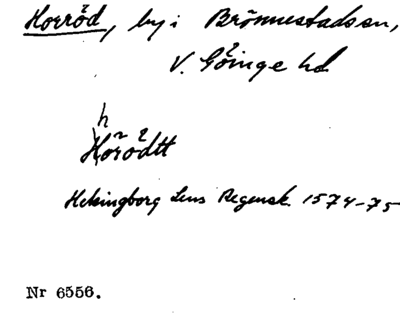 Horröd, by i Brönnestads sn,
V. Göinge hd
h
Horödtt
Helsingborg Lens Regensk. 1574-75
Nr 6556.